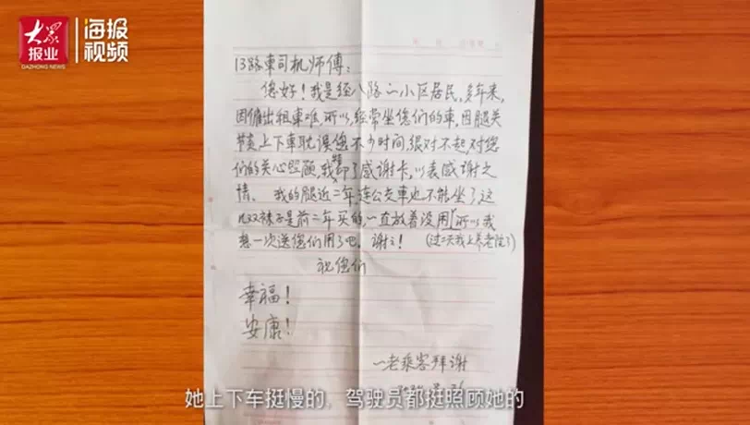 大眾
报业
DAZHONG NEWS
海报
视频
13路車司机师傅：
您好！我是经八路一小区居民，多年来，
因出租車难，所以，经常坐您们的車，因腿关
节炎上下車耽误您不少时间，很对不起，对您
们的关心照顾，我特印了感谢卡，以表感谢之
情。我的腿近二年，连公交車也不能坐了这
几双袜子是前二年买的一直放着没用，所以我
想一次送您们用了吧，谢々！（过二天我上养老院了）
祝您们
幸福！
安康！
一老乘客拜谢
她上下车挺慢的，驾驶员都挺照顾她的